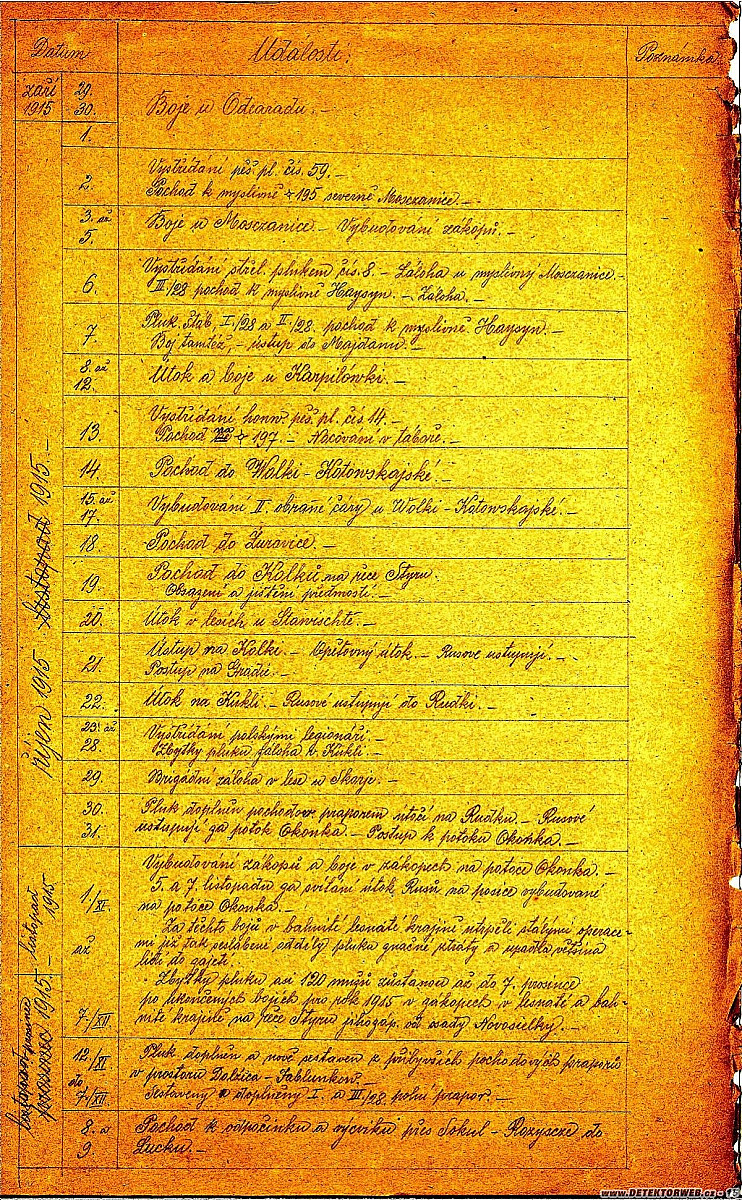 Datum
Události:
Poznámka.
září
1915
29.
30.
Boje u Odcaradu. —
1.
2.
Vystřídání pěš. pl. čís. 59. —
Pochod k myslivně 195 severně Mosczanice. —
3. až
5.
Boje u Mosczanice. — Vybudování zákopů. —
6.
Vystřídání střel. plukem čís. 8. — Záloha u myslivny Mosczanice. —
III/28 pochod k myslivně Haysyn. — Záloha. —
7.
Pluk. štáb, I./28 a II./28 pochod k myslivně Haysyn. —
Boj tamtéž, — ústup do Majdanu. —
8. až
12.
Útok a boje u Karpilówki. —
13.
Vystřídání honv. pěš. pl. čís 14. —
Pochod 197. — Nocování v táboře. —
14.
Pochod do Wolki - Kotowskajské. —
15. až
17.
Vybudování II. obranné čáry u Wolki - Kotowskajské. —
18.
Pochod do Žuravice. —
19.
Pochod do Kolků na řece Styru.
Obsazení a jištění předmostí. —
20.
Útok v lesích u Stawischte. —
21.
Ústup na Kolki. — Opětovný útok. — Rusové ustupují. —
Postup na Gradie. —
22.
Útok na Kukli. — Rusové ustupují do Rudki. —
23. až
28.
Vystřídání polskými legionáři. —
Zbytky pluku záloha v. Kukli. —
29.
Brigádní záloha v lese u Skorje. —
30.
31.
Pluk doplněn pochodov. praporem útočí na Rudku. — Rusové
ustupují za potok Okonka. — Postup k potoku Okonka. —
říjen 1915
listopad 1915. —
1./XI.
až
7./XII.
Vybudování zákopů a boje v zákopech na potoce Okonka. —
5. a 7. listopadu za svítání útok Rusů na posice vybudované
na potoce Okonka. —
Za těchto bojů v bahnité lesnaté krajině utrpěli stálými operace-
mi již tak seslabené oddíly pluku značné ztráty a upadla většina
lidí do zajetí.
Zbytky pluku asi 120 mužů zůstanou až do 7. prosince
po ukončených bojích pro rok 1915 v zákopech v lesnaté a bah-
nité krajině na řece Styru jihozáp. od osady Novosielky. —
listopad
1915
prosinec 1915. —
12./XI
do
7./XII.
Pluk doplněn a nově sestaven z přibyvších pochodových praporů
v prostoru Dolžica - Jablunkow. —
Sestaveny a doplněny I. a III/28 polní prapor. —
8. a
9
Pochod k odpočinku a výcviku přes Sokul - Rozyscze do
Lucku. —
www.DETEKTORWEB.cz